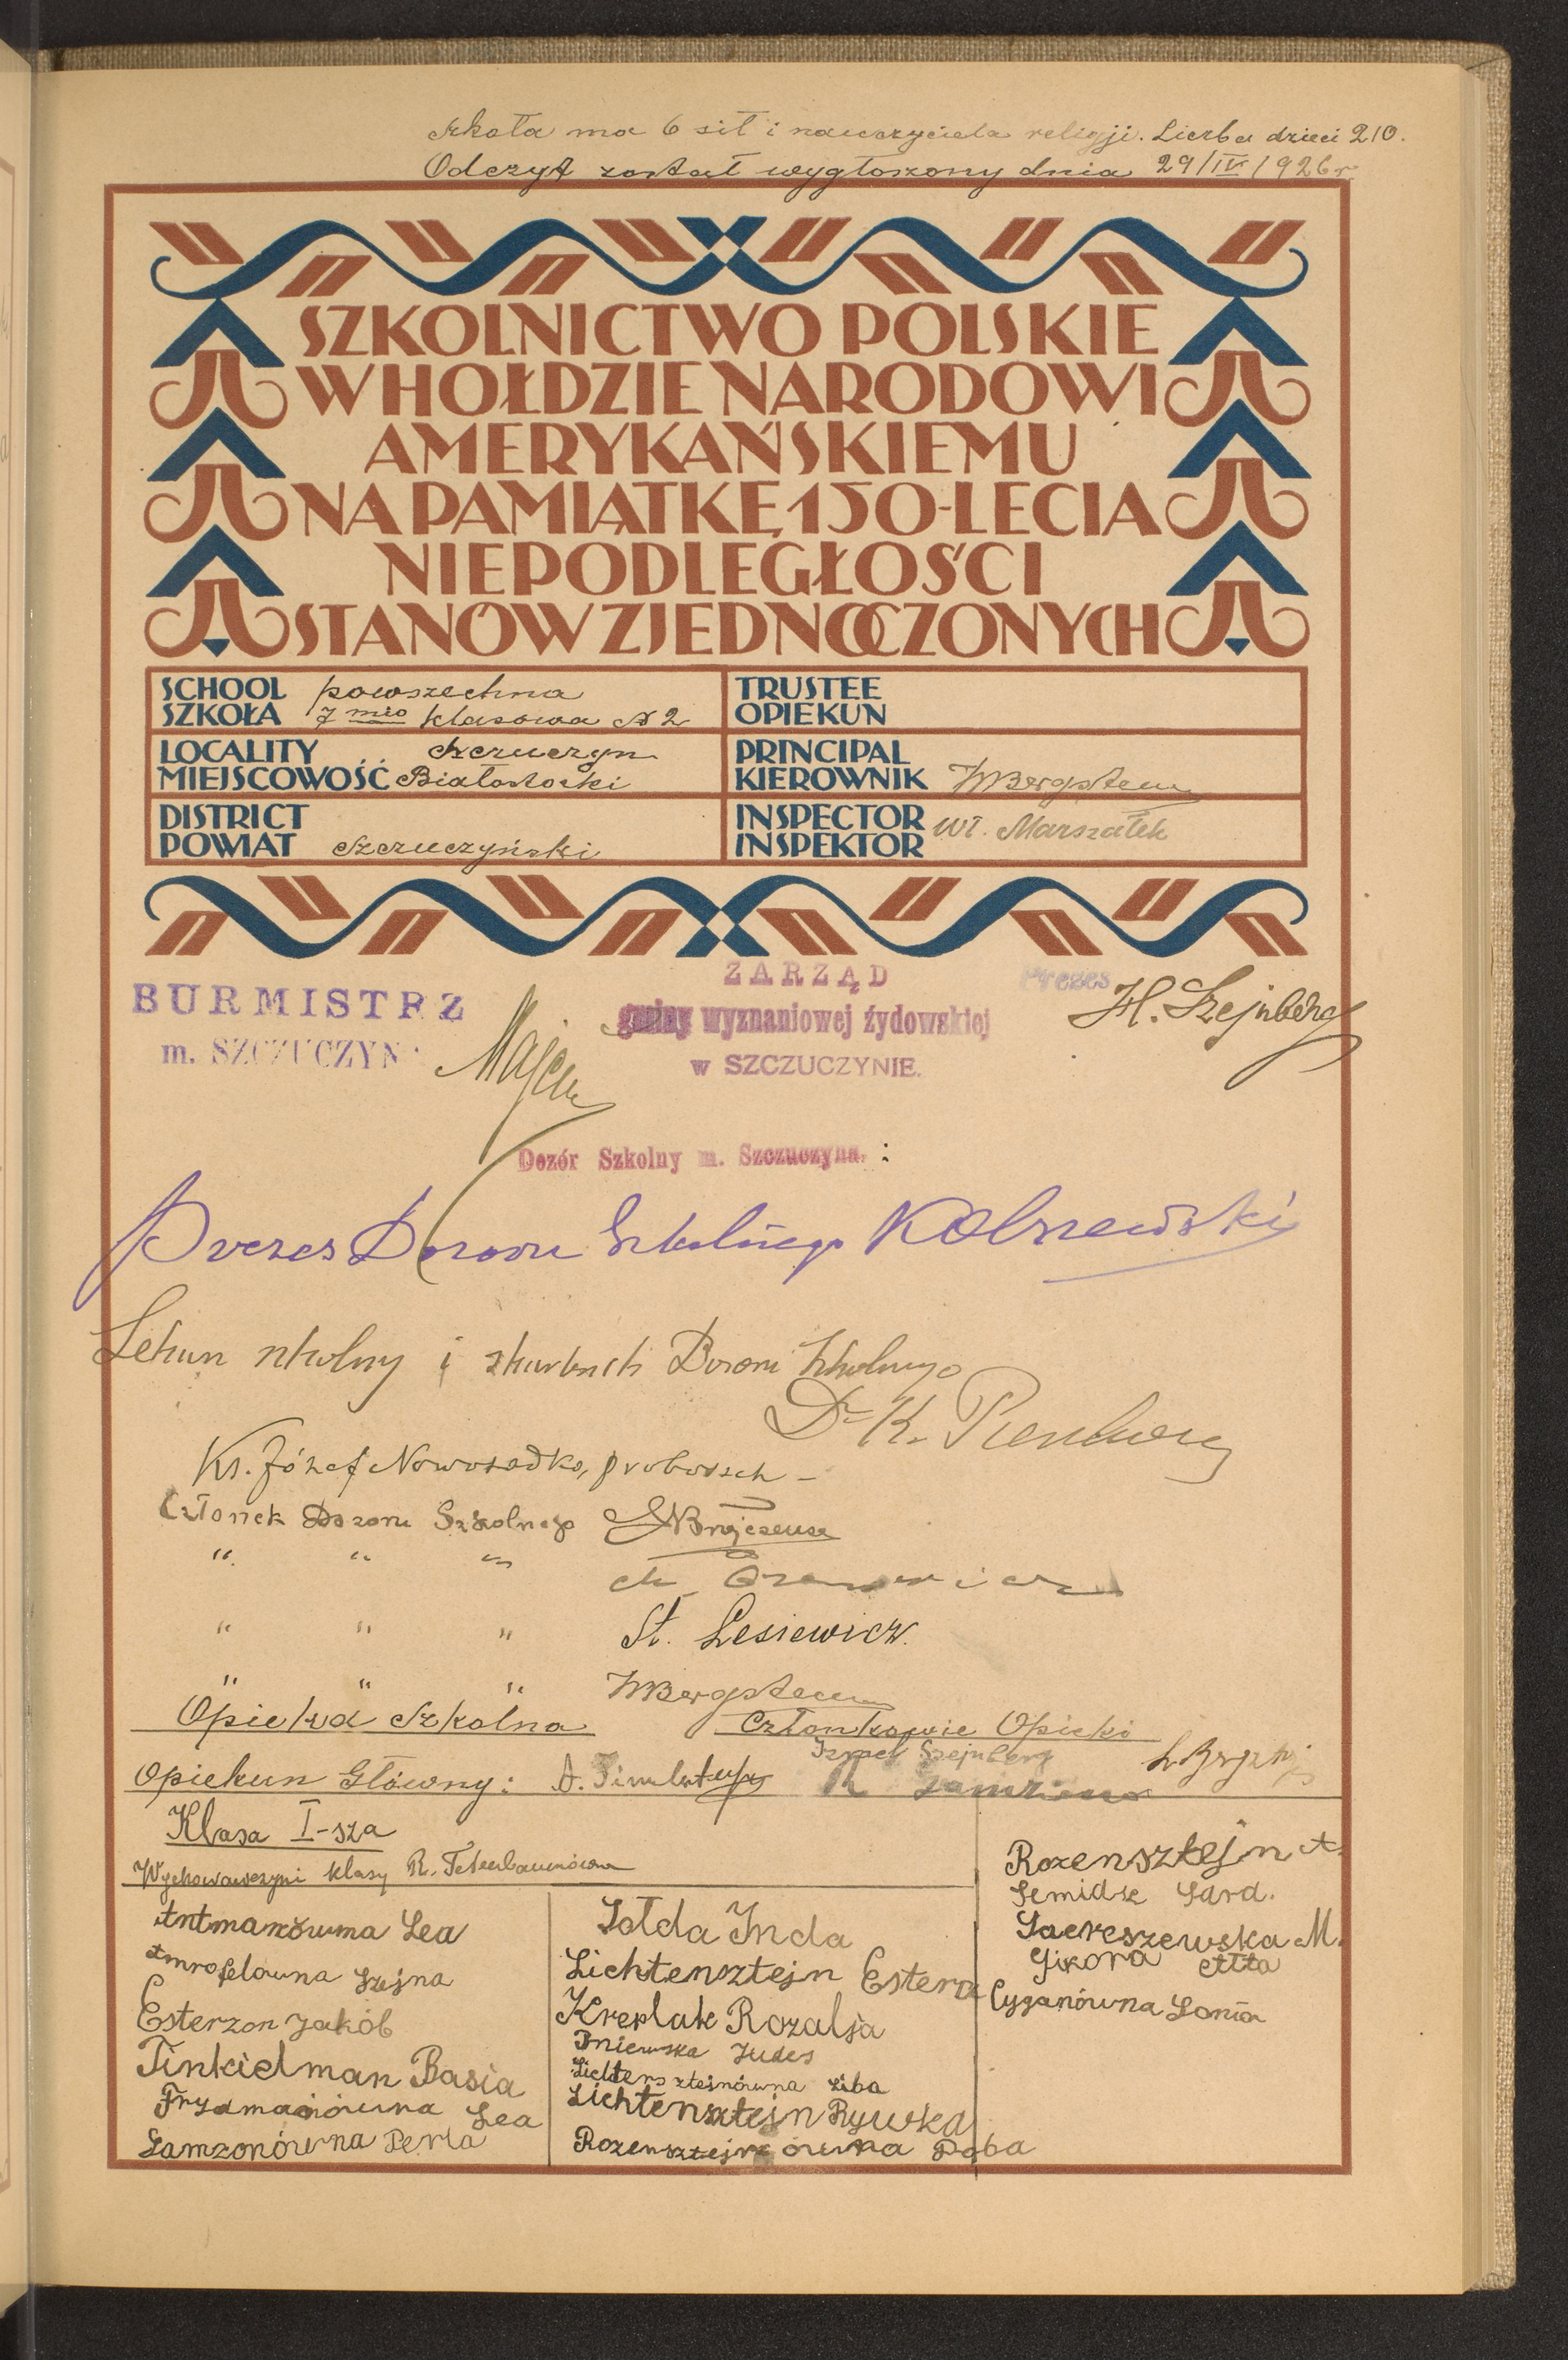 Szkoła ma 6 sił i nauczyciela religji. Liczba dzieci 210.
Odczyt został wygłoszony dnia 29/IV/1926 r.
SZKOLNICTWO POLSKIE
W HOŁDZIE NARODOWI
AMERYKAŃSKIEMU
NA PAMIĄTKĘ 150-LECIA
NIEPODLEGŁOŚCI
STANÓW ZJEDNOCZONYCH
SCHOOL
SZKOŁA
powszechna
7 mio klasowa N 2
TRUSTEE
OPIEKUN
LOCALITY
MIEJSCOWOŚĆ
Szczuczyn
Białostocki
PRINCIPAL
KIEROWNIK
DISTRICT
POWIAT
Szczuczyński
INSPECTOR
INSPEKTOR
Wł. Marszałek
BURMISTRZ
m. SZCZUCZYN
ZARZĄD
gminy wyznaniowej żydowskiej
w SZCZUCZYNIE.
Prezes
H. Szejnberg
Dozór Szkolny m. Szczuczyna. :
Prezes Dozoru Szkolnego
Lekarz szkolny i skarbnik Dozoru Szkolnego
Dr K.
Ks. Józef Nowosadko, proboszcz -
Członek Dozoru Szkolnego
" " "
" " " St. Lesiewicz.
" " "
Opieka Szkolna
Członkowie Opieki
Opiekun Główny:
Szejnberg
Klasa I-sza
Wychowawczyni klasy R.
Antmanówna Lea
Szejna
Esterzon Jakób
Finkielman Basia
Frydmanówna Lea
Zamzonówna Perla
Jołda Inda
Lichtensztejn Estera
Kreplak Rozalja
Judes
Lichtensztejnówna Liba
Lichtensztejn Rywka
Rozensztejnówna Doba
Rozensztejn A.
Semidsz Sara.
M.
Ałta
Cyganówna Sonia